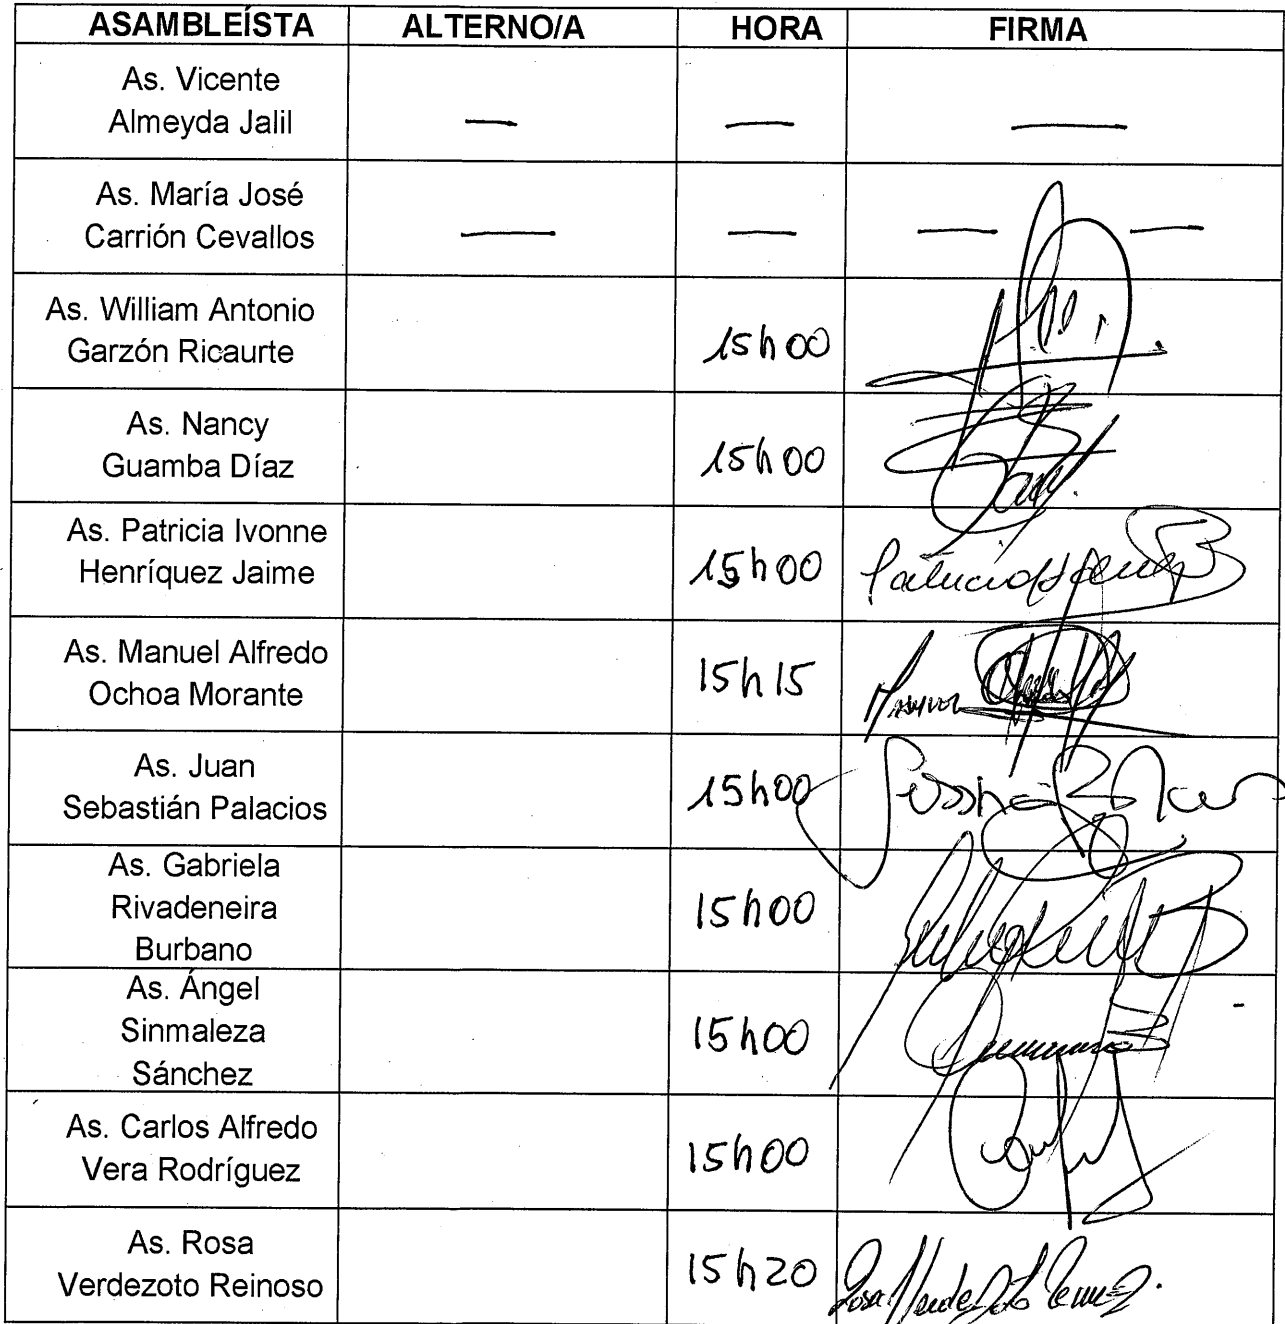 ASAMBLEÍSTA ALTERNO/A HORA FIRMA
As. Vicente
Almeyda Jalil — — —
As. María José
Carrión Cevallos — — — —
As. William Antonio
Garzón Ricaurte 15h00
As. Nancy
Guamba Díaz 15h00
As. Patricia Ivonne
Henríquez Jaime 15h00
As. Manuel Alfredo
Ochoa Morante 15h15
As. Juan
Sebastián Palacios 15h00
As. Gabriela
Rivadeneira 15h00
Burbano
As. Ángel
Sinmaleza 15h00
Sánchez
As. Carlos Alfredo
Vera Rodríguez 15h00
As. Rosa
Verdezoto Reinoso 15h20